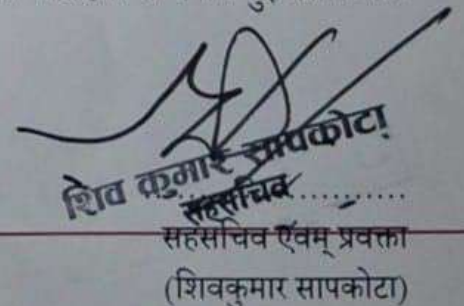 शिव कुमार सापकोटा
सहसचिव
..................
सहसचिव एवम् प्रवक्ता
(शिवकुमार सापकोटा)